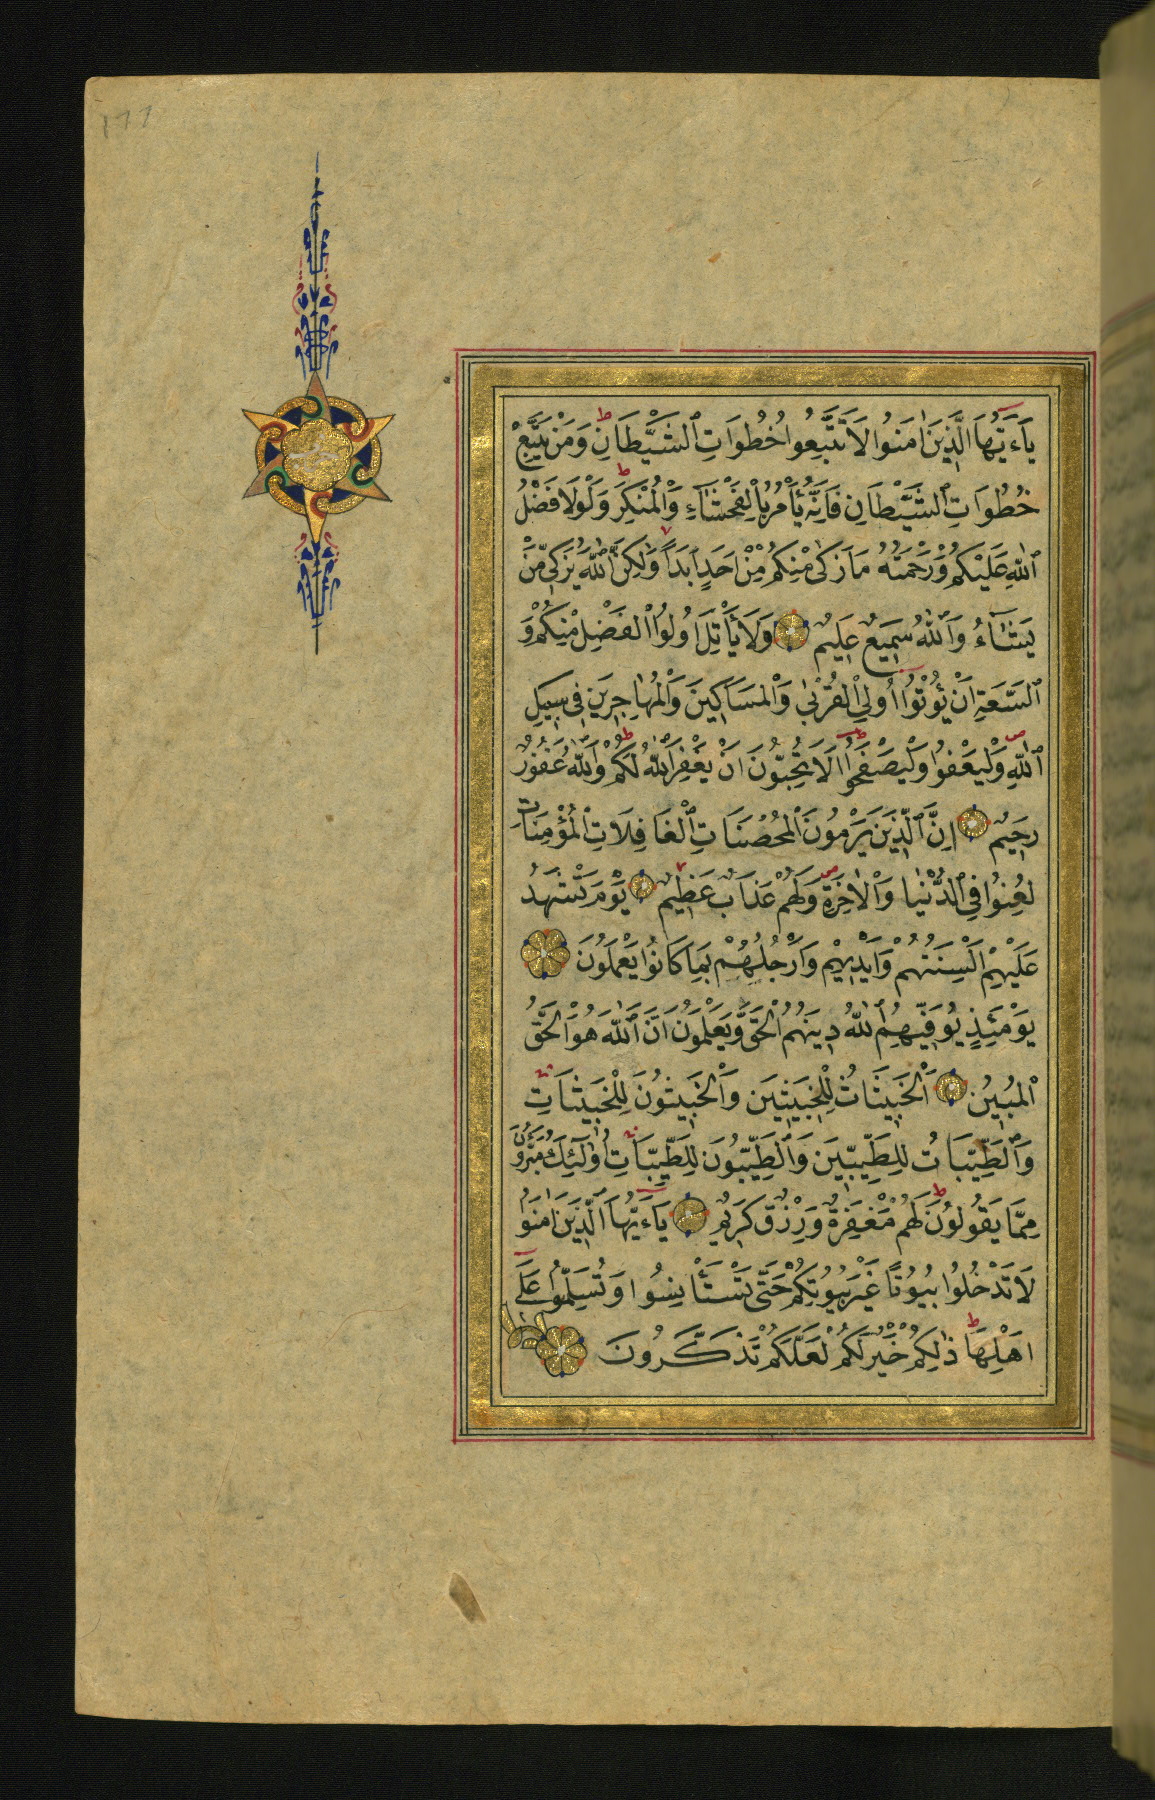 ١٧٧
يَاۤءَيُّهَا الَّذِينَ اٰمَنُوا لَا تَتَّبِعُوا خُطُوَاتِ ٱلشَّيْطَانِ ط وَمَنْ يَتَّبِعْ
خُطُوَاتِ ٱلشَّيْطَانِ فَاِنَّهُ يَأْمُرُ بِالْفَحْشَاۤءِ وَالْمُنْكَرِ ط وَلَوْلَا فَضْلُ
ٱللّٰهِ عَلَيْكُمْ وَرَحْمَتُهُ مَا زَكٰى مِنْكُمْ مِنْ اَحَدٍ اَبَدًا لا وَلٰكِنَّ ٱللّٰهَ يُزَكِّى مَنْ
يَشَاۤءُ وَٱللّٰهُ سَمِيعٌ عَلِيمٌ وَلَا يَأْتَلِ اُولُوا الْفَضْلِ مِنْكُمْ وَ
ٱلسَّعَةِ اَنْ يُؤْتُوۤا اُولِى الْقُرْبٰى وَالْمَسَاكِينَ وَالْمُهَاجِرِينَ فِى سَبِيلِ
ٱللّٰهِ ص وَلْيَعْفُوا وَلْيَصْفَحُوا ط اَلَا تُحِبُّونَ اَنْ يَغْفِرَ ٱللّٰهُ لَكُمْ ط وَٱللّٰهُ غَفُورٌ
رَحِيمٌ اِنَّ ٱلَّذِينَ يَرْمُونَ ٱلْمُحْصَنَاتِ ٱلْغَافِلَاتِ الْمُؤْمِنَاتِ
لُعِنُوا فِى ٱلدُّنْيَا وَالْاٰخِرَةِ ص وَلَهُمْ عَذَابٌ عَظِيمٌ لا يَوْمَ تَشْهَدُ
عَلَيْهِمْ اَلْسِنَتُهُمْ وَاَيْدِيهِمْ وَاَرْجُلُهُمْ بِمَا كَانُوا يَعْمَلُونَ
يَوْمَئِذٍ يُوَفِّيهِمُ ٱللّٰهُ دِينَهُمُ الْحَقَّ وَيَعْلَمُونَ اَنَّ ٱللّٰهَ هُوَ الْحَقُّ
ٱلْمُبِينُ اَلْخَبِيثَاتُ لِلْخَبِيثِينَ وَالْخَبِيثُونَ لِلْخَبِيثَاتِ
وَٱلطَّيِّبَاتُ لِلطَّيِّبِينَ وَٱلطَّيِّبُونَ لِلطَّيِّبَاتِ اُولٰۤئِكَ مُبَرَّؤُنَ
مِمَّا يَقُولُونَ ط لَهُمْ مَغْفِرَةٌ وَرِزْقٌ كَرِيمٌ يَاۤءَيُّهَا ٱلَّذِينَ اٰمَنُوا
لَا تَدْخُلُوا بُيُوتًا غَيْرَ بُيُوتِكُمْ حَتّٰى تَسْتَأْنِسُوا وَتُسَلِّمُوا عَلٰۤى
اَهْلِهَا ط ذٰلِكُمْ خَيْرٌ لَكُمْ لَعَلَّكُمْ تَذَكَّرُونَ